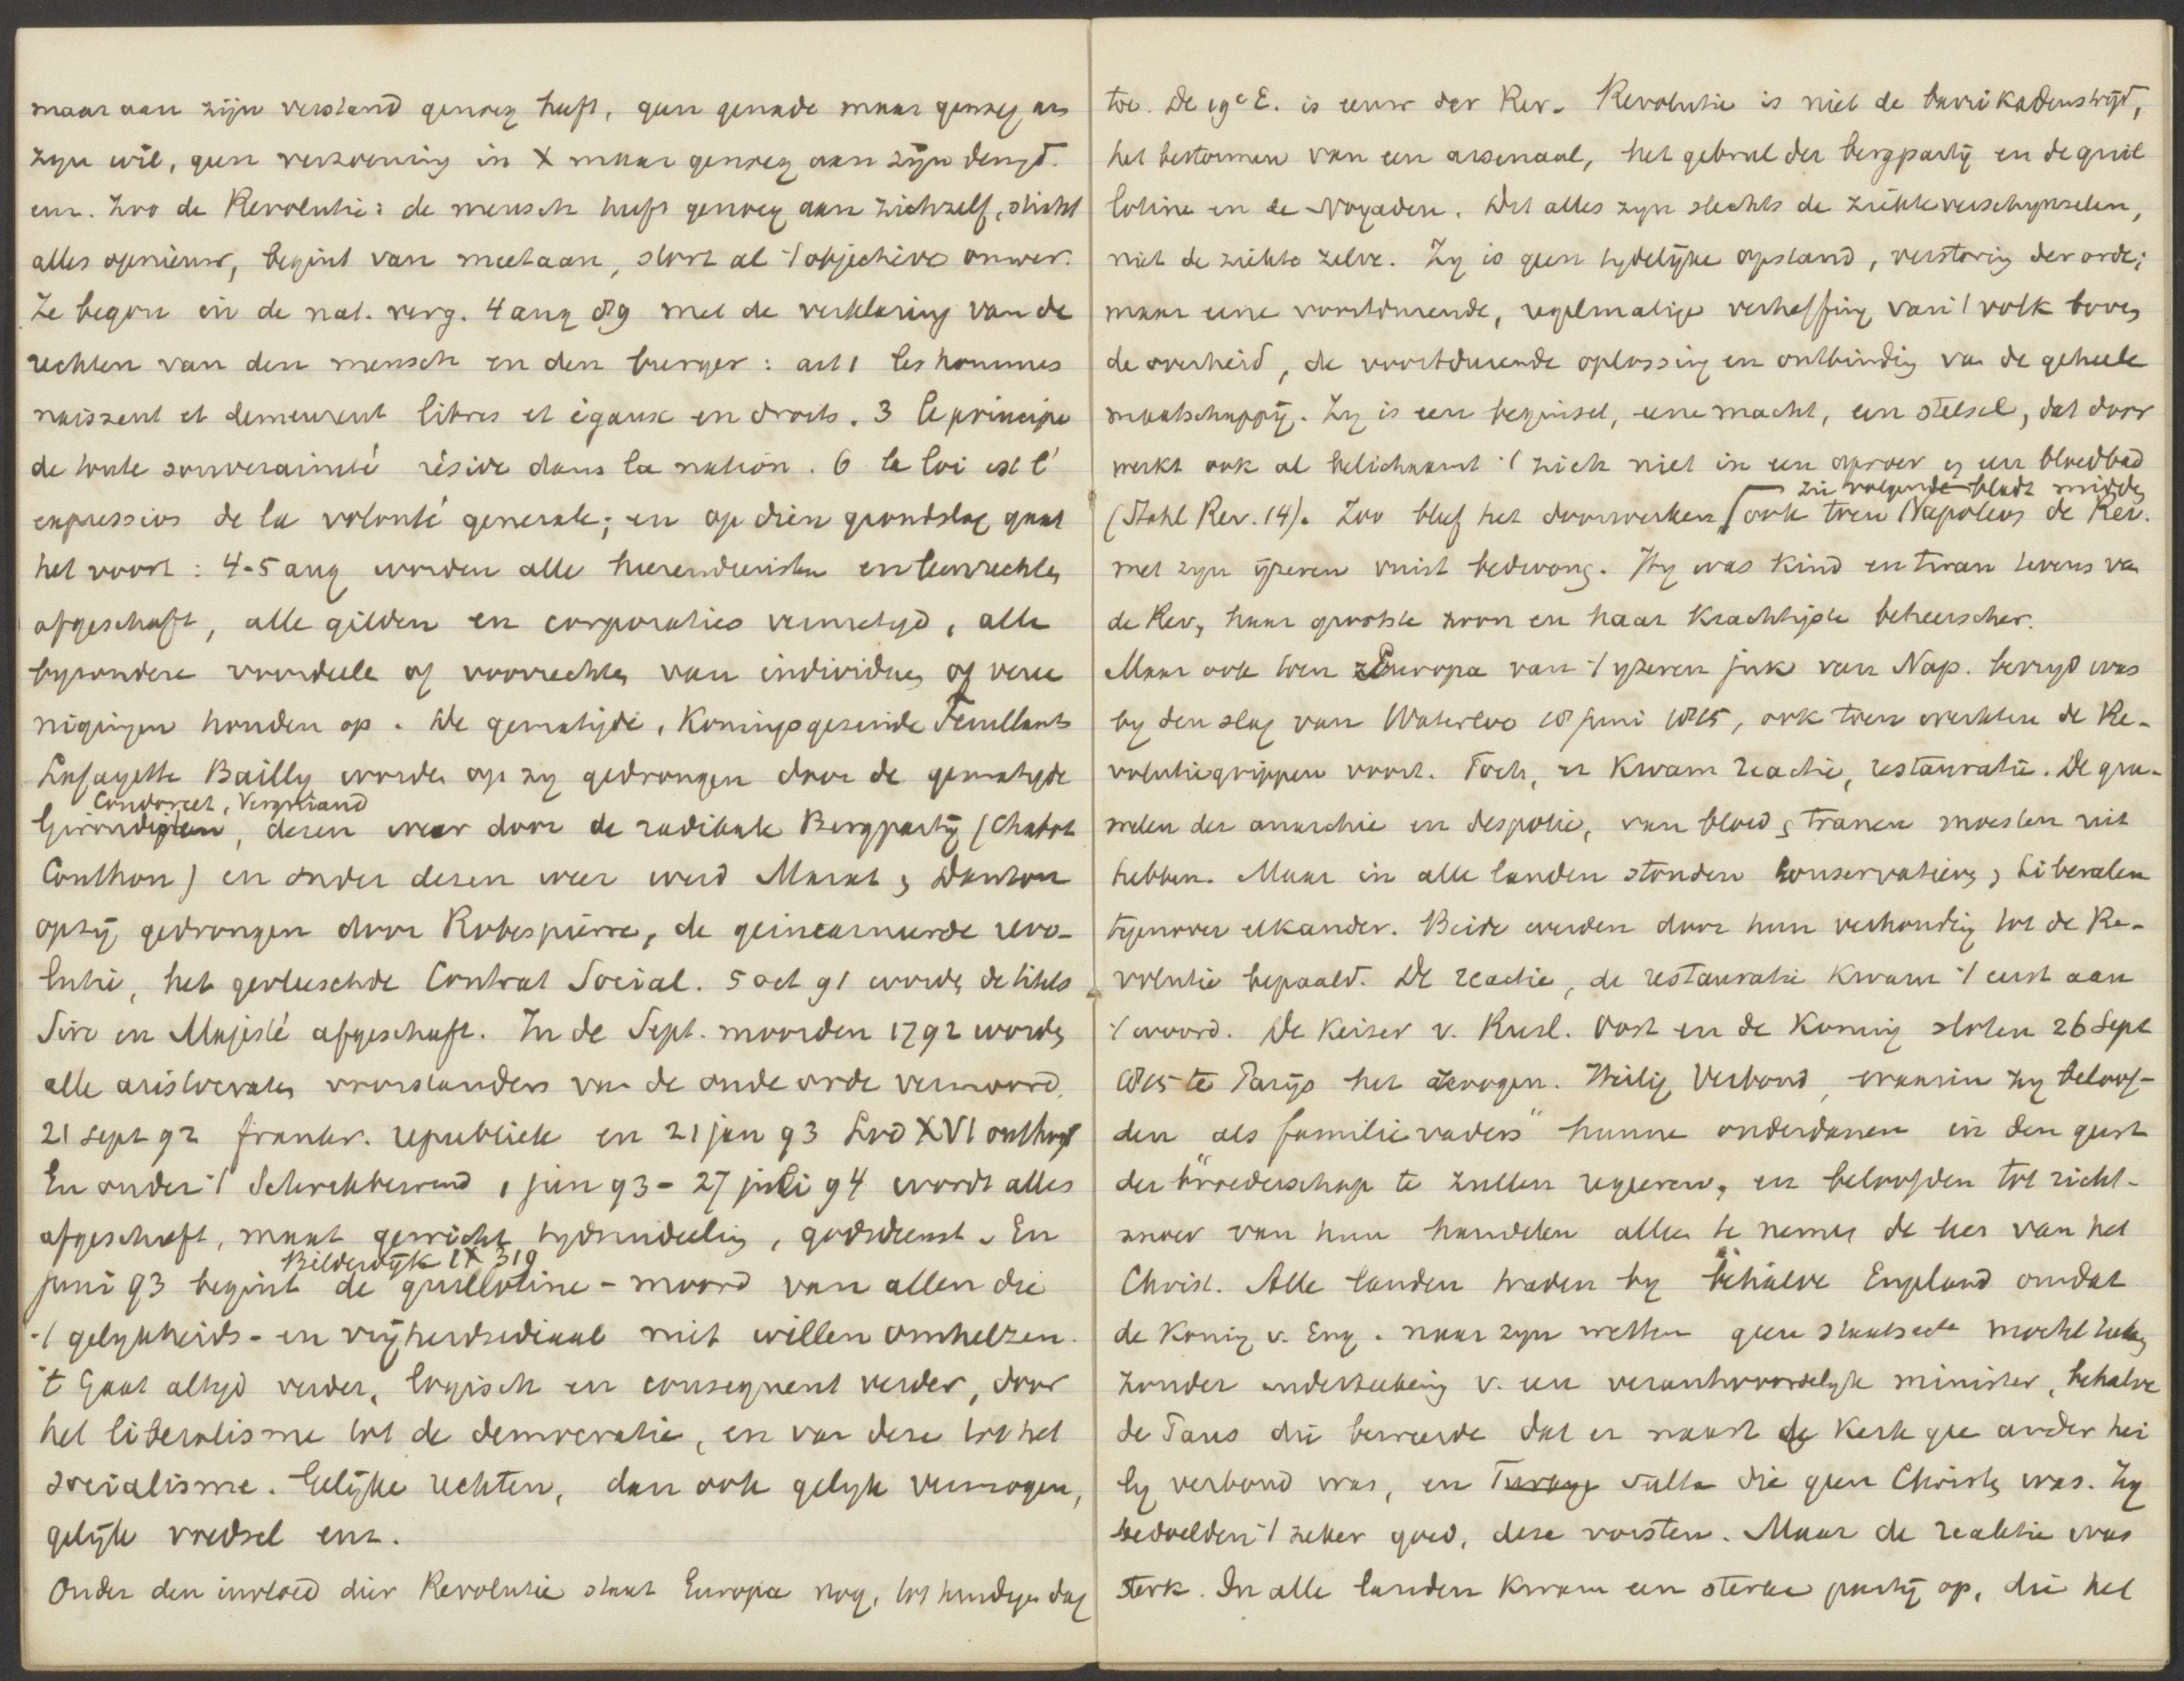 maar aan zijn verstand genoeg heeft, geen genade maar genoeg aan
zyn wil, geen verzoening in X maar genoeg aan zijn deugd.
enz. Zoo de Revolutie: de mensch heeft genoeg aan zichzelf, sticht
alles opnieuw, begint van meetaan, stort al 't objectieve omver.
Ze begon in de nat. verg. 4 aug 89 met de verklaring van de
rechten van den mensch en den burger: art 1 les hommes
naissent et demeurent libres et égaux en droits. 3 le principe
de toute souveraineté réside dans la nation. 6 la loi est l'
expression de la volonté generale; en op dien grondslag gaat
het voort: 4-5 aug worden alle heerendiensten en leenrechten
afgeschaft, alle gilden en corporaties vernietigd, alle
byzondere voordeele of voorrechten van individuen of veree
nigingen houden op. De gematigde, Koningsgezinde Feuillants
Lafayette Bailly worden op zy gedrongen door de gematigde
Condorcet, Vergniaud
Girondisten, dezen weer door de radikale Bergpartij (Chabot
Couthon) en onder dezen weer werd Marat & Danton
opzij gedrongen door Robespierre, de geincarneerde revo-
lutie, het gevleeschde Contrat Social. 5 oct 91 worden de titels
Sire en Majesté afgeschaft. In de Sept. moorden 1792 worden
alle aristocraten voorstanders van de oude orde vermoord.
21 sept 92 frankr. republiek en 21 jan 93 Lod XVI onthoofd
En onder 't Schrikbewind 1 juni 93 - 27 juli 94 wordt alles
afgeschaft, maat gewicht tydsindeeling, godsdienst. En
Bilderdijk IX 319
juni 93 begint de guillotine-moord van allen die
't gelykheids- en vrijheidsideaal niet willen omhelzen.
't Gaat altyd verder, logisch en consequent verder, door
het liberalisme tot de democratie, en van deze tot het
socialisme. Gelijke rechten, dan ook gelyk vermogen,
gelijk voedsel enz.
Onder den invloed dier Revolutie staat Europa nog, tot huidigen dag
toe. De 19e E. is eeuw der Rev. Revolutie is niet de barrikadenstrijd,
het bestormen van een arsenaal, het gebrul der bergpartij en de guil
lotine en de Noyaden. Dit alles zyn slechts de ziekteverschynselen,
niet de ziekte zelve. Zy is geen tydelijke opstand, verstoring der orde;
maar eene voortdurende, regelmatige verheffing van 't volk boven
de overheid, de voortdurende oplossing en ontbinding van de geheele
maatschappij. Zy is een beginsel, eene macht, een stelsel, dat door
werkt ook al belichaamt 't zich niet in een oproer en een bloedbad
zie volgende bladz midden
(Stahl Rev. 14). Zoo bleef het doorwerken ook toen Napoleon de Rev.
met zyn ijzeren vuist bedwong. Hy was kind en tiran tevens van
de Rev, haar grootste zoon en haar krachtigste beheerscher.
Maar ook toen Europa van 't yzeren juk van Nap. bevryd was
by den slag van Waterloo 18 juni 1815, ook toen werkten de Re-
volutiegrippen voort. Toch, er kwam reactie, restauratie. De gru-
welen der anarchie en despotie, van bloed & tranen moesten uit
hebben. Maar in alle landen stonden konservatieven & liberalen
tegenover elkander. Beide werden door hun verhouding tot de Re-
volutie bepaald. De reactie, de restauratie kwam 't eerst aan
't woord. De Keizer v. Rusl. Oost en de Koning sloten 26 Sept
1815 te Parijs het zoogen. Heilig Verbond, waarin zy beloof-
den als familievaders" hunne onderdanen in den geest
der "broederschap te zullen regeeren, en beloofden tot richt-
snoer van hun handelen alleen te nemen de leer van het
Christ. Alle landen traden by behalve Engeland omdat
de Koning v. Eng. naar zyn wetten geen staatsacte mocht teeken
zonder onderteekening v. een verantwoordelyk minister, behalve
de Paus die beweerde dat er naast de kerk gee ander hei
lig verbond was, en Turkye Sultan die geen Christen was. Zy
bedoelden 't zeker goed, deze vorsten. Maar de reaktie was
sterk. In alle landen kwam een sterke partij op, die het